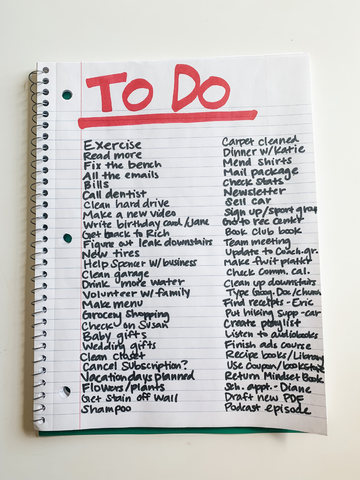 TO DO
Exercise
Read more
Fix the bench
All the emails
Bills
Call dentist
Clean hard drive
Make a new video
Write birthday card/Jane
Get back to Rich
Figure out leak downstairs
New tires
Help Spencer w/business
Clean garage
Drink more water
Volunteer w/family
Make menu
Grocery Shopping
Check on Susan
Baby gifts
Wedding gifts
Clean closet
Cancel Subscription?
Vacation days planned
Flowers/plants
Get Stain off Wall
Shampoo
Carpet cleaned
Dinner w/Katie
Mend shirts
Mail package
Check Stats
Newsletter
Sell car
Sign up/sport group
Go to rec center
Book Club book
Team meeting
Update to Coach.gr.
Make fruit platter
Check Comm. cal.
Clean up downstairs
Type Goog. Doc/church
Find receipts - Eric
Put hiking supp -car
Create playlist
Listen to audiobooks
Finish ads course
Recipe books/Library
Use Coupon/bookstore
Return Mindset Book
Sch. appt. - Diane
Draft new PDF
Podcast episode